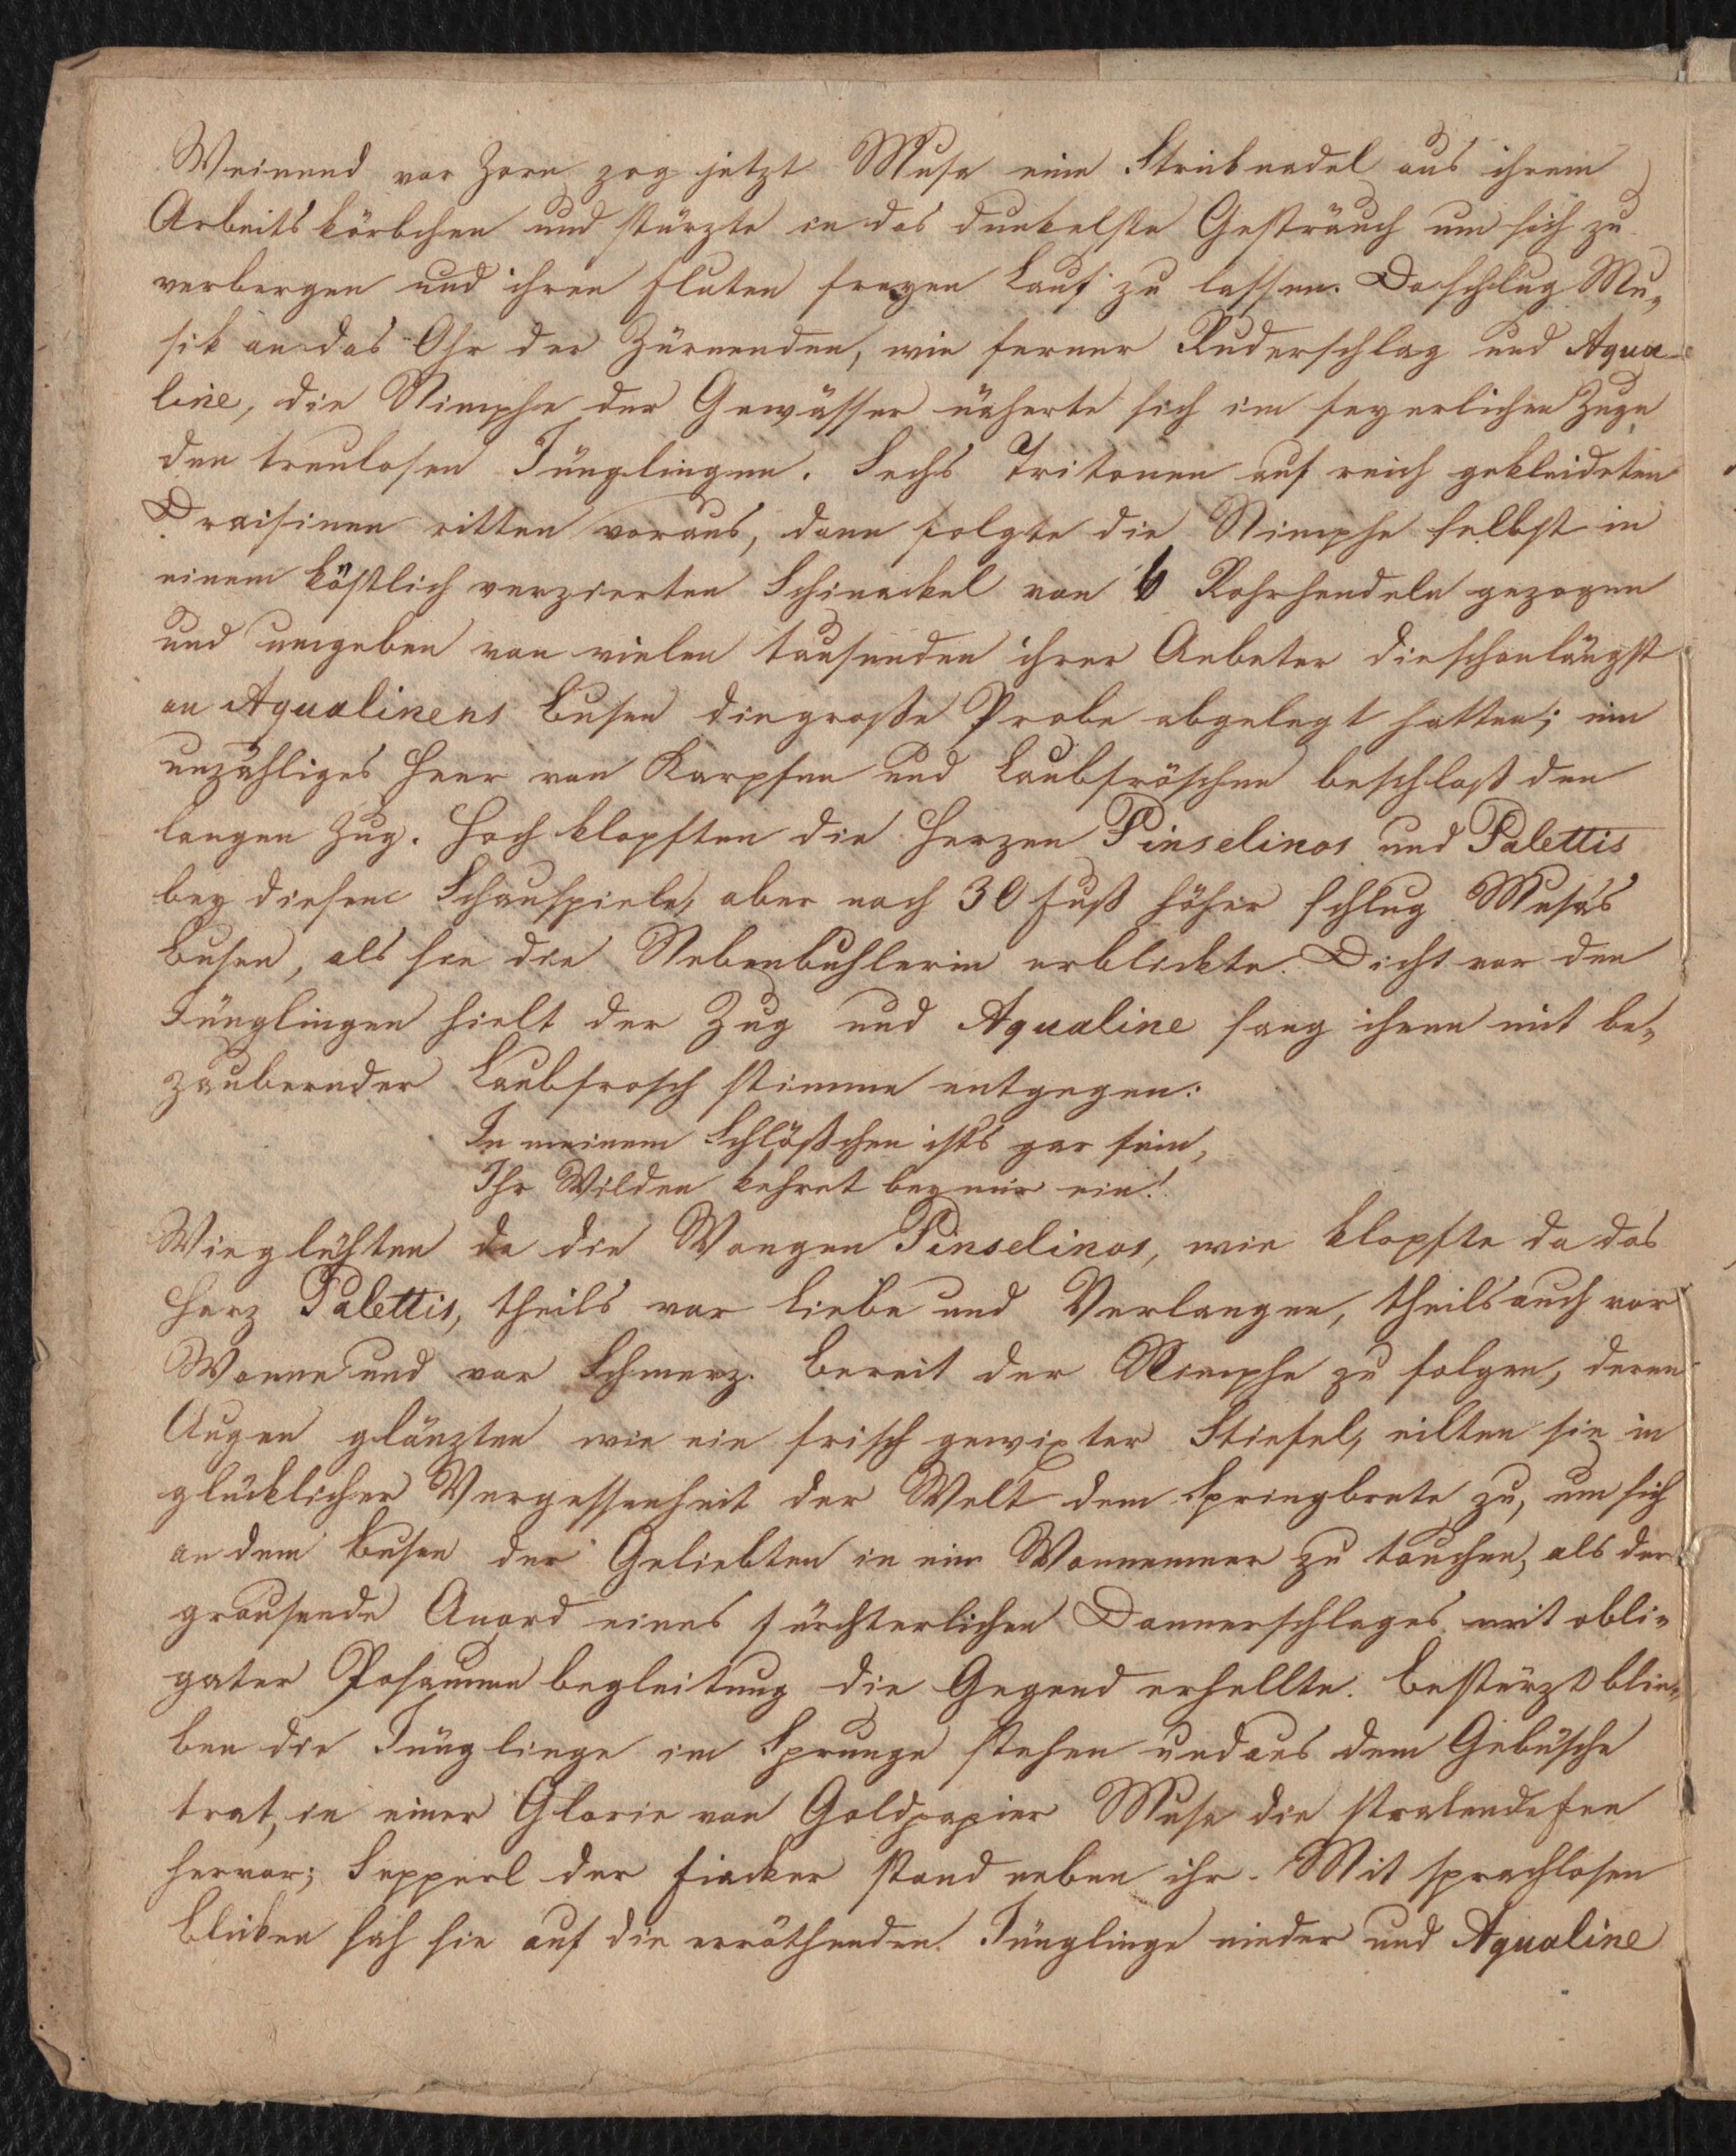 Weinend vor Zorn zog jetzt Musa eine Stricknadel aus ihrem
Arbeitskörbchen und stürzte in das dunkelste Gesträuch um sich zu
verbergen und ihren Fluten freyen Lauf zu lassen. Da schlug Mu„
sik an das Ohr der Zürnenden, wie ferner Ruderschlag und Aqua-
line, die Nimphe der Gewässer näherte sich im feyerlichen Zuge
den treulosen Jünglingen. Sechs Tritonen auf reich gekleideten
Draisinen ritten voraus, dann folgte die Nimphe selbst in
einem köstlich verzierten Schinackel von 6 Rohrhendeln gezogen
und umgeben von vielen tausenden ihrer Anbeter die schon längst
an Aqualinens Busen die große Probe abgelegt hatten; ein
unzähliges Heer von Karpfen und Laubfröschen beschloß den
langen Zug. Hoch klopften die Herzen Pinselinos und Palettis
bey diesem Schauspiele, aber noch 30 Fuß höher schlug Musa's
Busen, als sie die Nebenbuhlerin erblickte. Dicht vor den
Jünglingen hielt der Zug und Aqualine sang ihnen mit be„
zaubernder Laubfrosch stimme entgegen:
In meinem Schlößchen ists gar fein,
Ihr Wilden kehret bey mir ein!
Wie glühten da die Wangen Pinselinos, wie klopfte da das
Herz Palettis, theils vor Liebe und Verlangen, theils auch vor
Wonne und vor Schmerz. Bereit der Nimphe zu folgen, deren
Augen glänzten wie ein frisch gewixter Stiefel, eilten sie in
glücklicher Vergessenheit der Welt dem Springbrete zu, um sich
an dem Busen der Geliebten in ein Wonnemeer zu tauchen, als der
grausende eines fürchterlichen Donnerschlages mit obli„
gater Posaunen begleitung die Gegend erhellte. Bestürzt blie„
ben die Jünglinge im Sprunge stehen und aus dem Gebüsche
trat, in einer Glorie von Goldpapier Musa die stralende Fee
hervor; Sepperl der Fiacker stand neben ihr. Mit sprachlosen
Blicken sah sie auf die erröthenden Jünglinge nieder und Aqualine